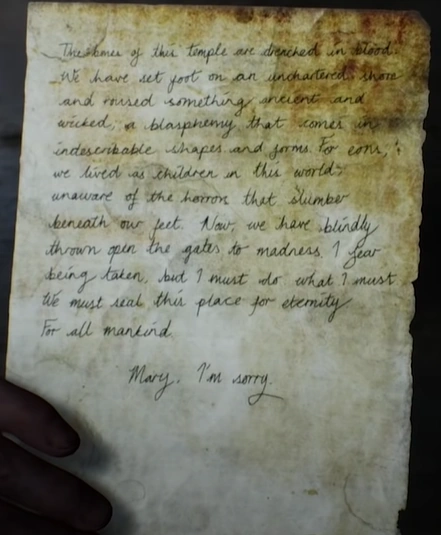 The bones of this temple are drenched in blood.
We have set foot on an unchartered shore
and roused something ancient and
wicked, a blasphemy that comes in
indescribable shapes and forms. For eons,
we lived as children in this world;
unaware of the horrors that slumber
beneath our feet. Now, we have blindly
thrown open the gates to madness. I fear
being taken, but I must do what I must
We must seal this place for eternity
For all mankind.
Mary, I'm sorry.